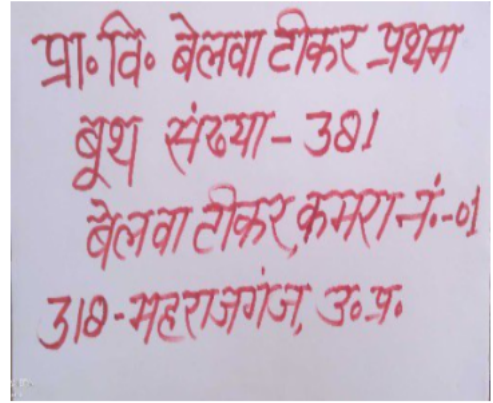 प्रा॰ वि॰ बेलवा टीकर प्रथम
बूथ संख्या - 381
बेलवा टीकर, कमरा नं॰-01
318-महराजगंज, उ॰ प्र॰